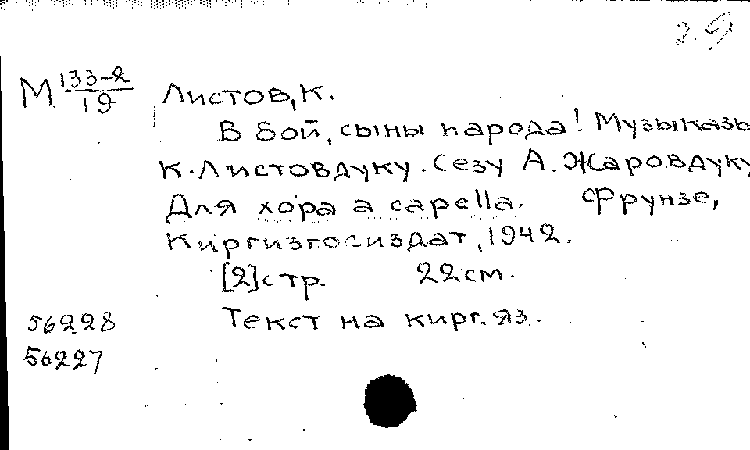 М 133-2/19 Листов, К.
В бой, сыны народа! Музыказы
К. Листовдуку. Сезу А. Жаровдуку
Для хора a capella. Фрунзе,
Киргизгосиздат, 1942.
[2] стр. 22 см.
56228 Текст на кирг. яз.
56227